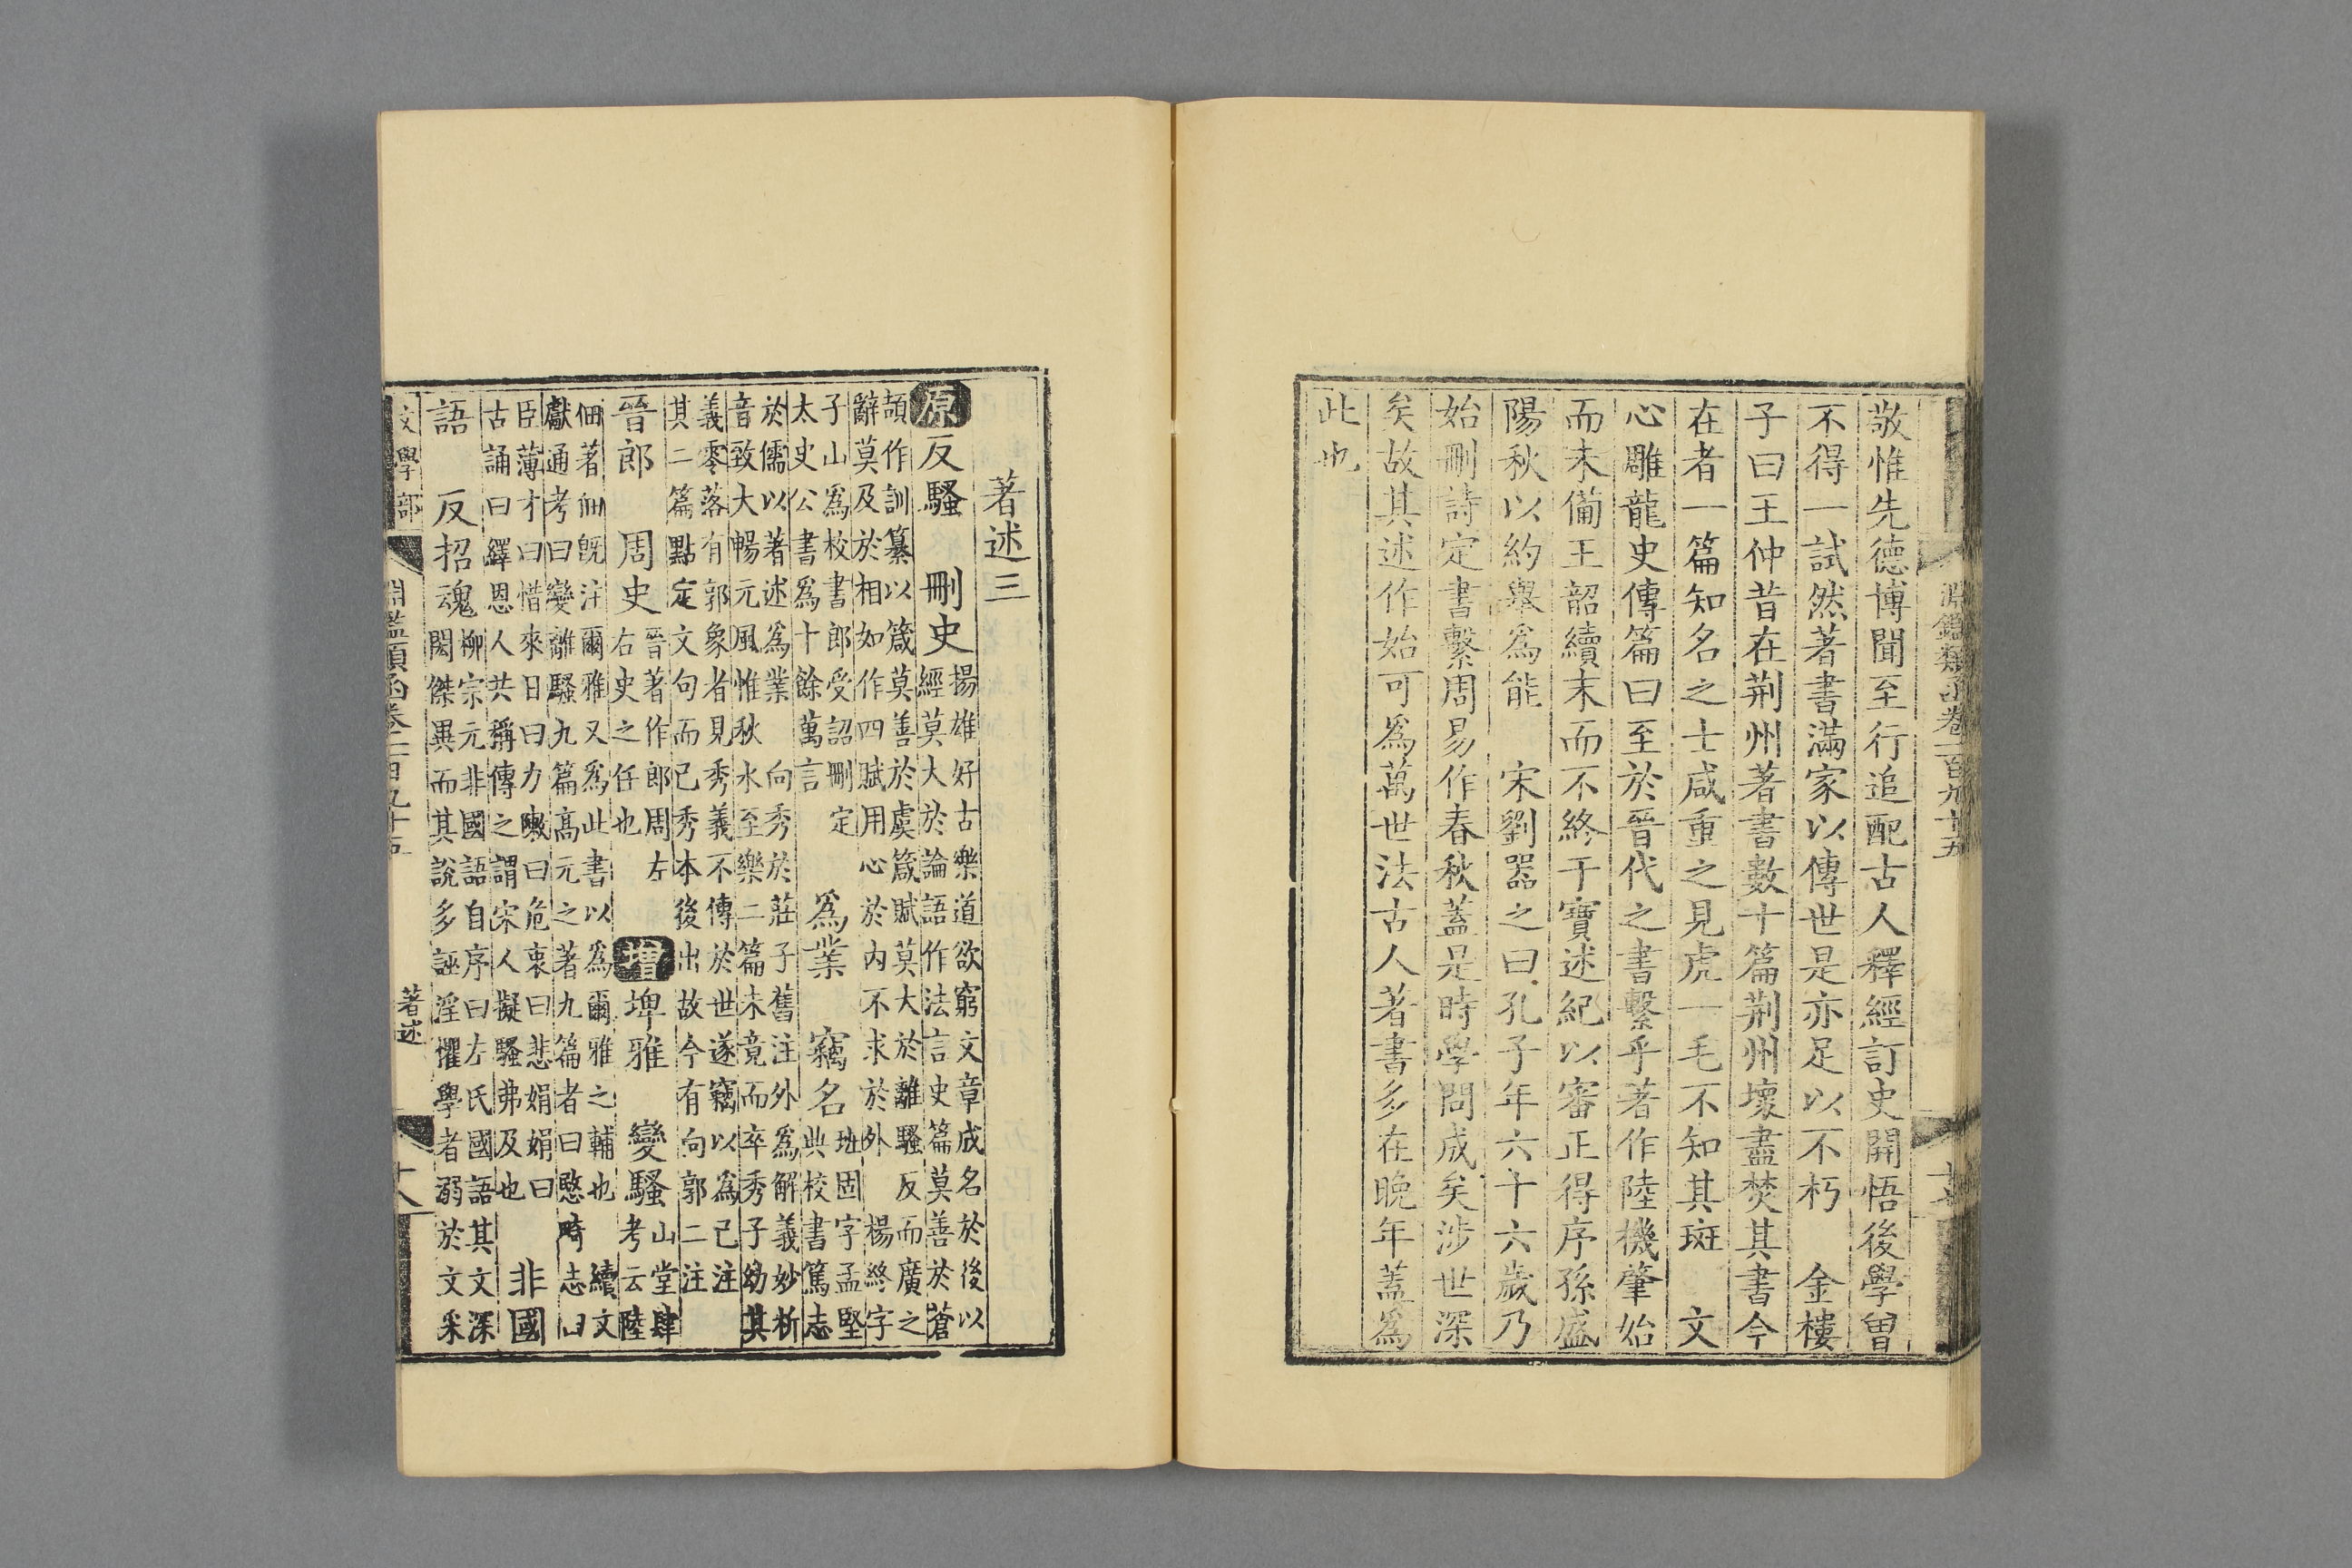 淵鑑類函卷一百九十五
敬惟先德博聞至行追配古人釋經訂史開悟後學曾
不得一試然著書滿家以傳世是亦足以不朽　金樓
子曰王仲昔在荆州著書數十篇荆州壞盡焚其書今
在者一篇知名之士咸重之見虎一毛不知其斑　文
心雕龍史傳篇曰至於晉代之書繫乎著作陸機肇始
而未備王韶續末而不終干寶述紀以審正得序孫盛
陽秋以約舉爲能　宋劉器之曰孔子年六十六歲乃
始刪詩定書繫周易作春秋蓋是時學問成矣涉世深
矣故其述作始可爲萬世法古人著書多在晚年蓋爲
此也
著述三
原反騷　刪史揚雄好古樂道欲窮文章成名於後以
經莫大於論語作法言史篇莫善於蒼
頡作訓纂以箴莫善於虞箴賦莫大於離騷反而廣之
辭莫及於相如作四賦用心於內不求於外　楊終字
子山爲校書郎受詔刪定
太史公書爲十餘萬言　爲業　竊名班固字孟堅
典校書篤志
於儒以著述爲業　向秀於莊子舊注外爲解義妙析
音致大暢元風惟秋水至樂二篇未竟而卒秀子幼其
義零落有郭象者見秀義不傳於世遂竊以爲己注
其二篇點定文句而已秀本後出故今有向郭二注
晉郎　周史晉著作郎周左
右史之任也　增埤雅　變騷山堂肆
考云陸
佃著佃既注爾雅又爲此書以爲爾雅之輔也　續文
獻通考曰變離騷九篇高元之著九篇者曰愍畸志曰
臣薄才曰惜來日曰力曒曰危衷曰悲娟娟曰
古誦曰繹恩人共稱傳之謂宋人擬騷弗及也　非國
語　反招魂柳宗元非國語自序曰左氏國語其文深
閎傑異而其說多誣淫懼學者溺於文采
文學部　淵鑑類函卷一百九十五　著述　十八